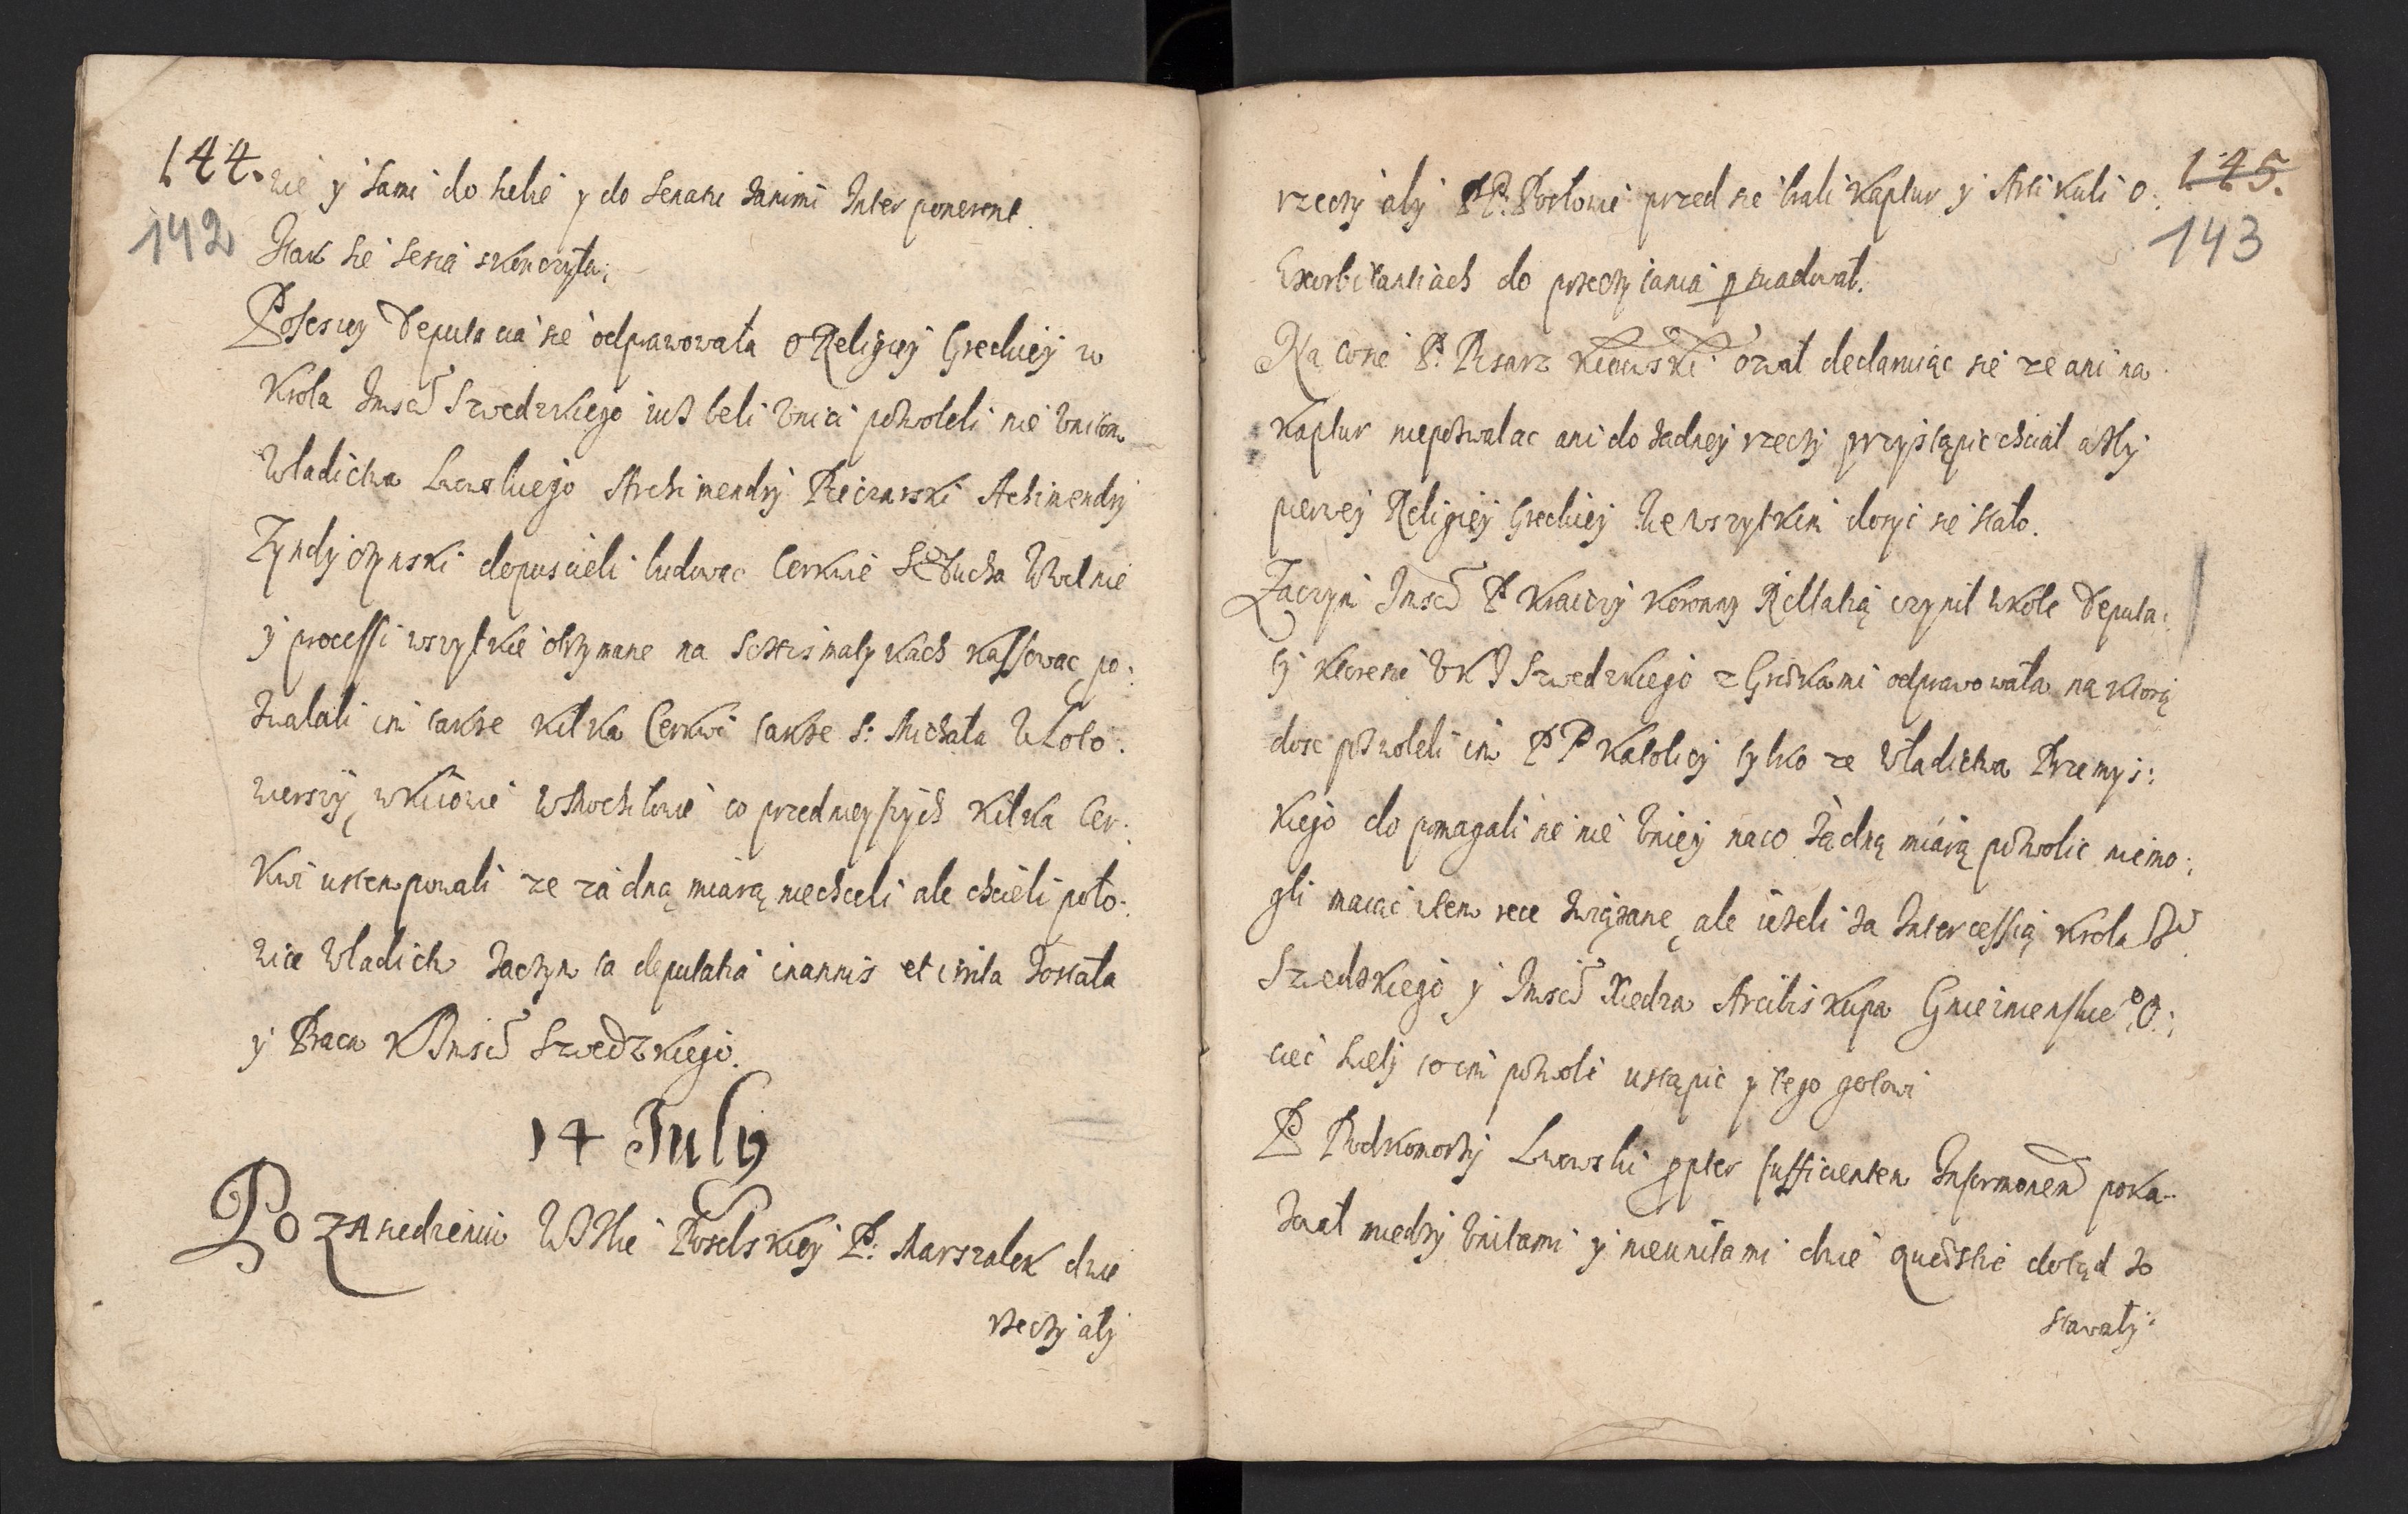 144.
142
nie y sami do siebie y do Senatu sanimi Inter ponerent.
Itak sie sessia skonczyła,
Posessiey Deputacia sie odprawowała o Religiey Greckiey w
Krola Jmsci Szwedzkiego iusz beli Unici pozwoleli nie Unitom
Władictwa Lwowskiego Archimendry Pieczarski Achimendry
Zyndyczynski dopuscieli budowac Cerkwie S Ducha W Wilnie
y processi wszytkie otrzymane na Schismatykach kassowac po:
zwalali im takze kilka Cerkwi takze S: Michała W Koło:
wierszy, w Kiiowie W Mochilowie co przednieyszych kilka Cer:
kwi ustempowali ze zadną miarą niechcieli ale chcieli poło:
wice Władictw zaczym ta deputatia inannis et irrita zostala
y Praca K Jmsci Szwedzkiego.
14 July
Po zasiedzeniu W Izbie Poselskiey P: Marszalek dwie
rzeczy aby
145.
143
rzeczy aby PP. Posłowie przed sie brali Kaptur y Artikuli o
Exorbitantiach do przeczytania persuadował.
Na co sie P. Pisarz Kiiowski ozwał declaruiąc sie ze ani na
Kaptur niepozwalac ani do zadney rzeczy przystąpic chciał aszby
pierwey Religiey Greckiey we wszytkim dosyc sie stało.
Zaczym Jmsc P Kraiczy Koronny Relatią czynił w kole Deputa:
ty ktora sie U K J Szwedzkiego z Grekami odprawowała, na ktorą
dosc pozwoleli im PP Katolicy tylko ze Władictwa Przemys:
kiego do pomagali sie nie Uniey naco żadną miarą pozwolic niemo:
gli maiąc wtem rece związane, ale iezeli za Intercessią Krola J
Szwedzkiego y Jmsci Xiedza Arcibiskupa Gnieznienskie°
P Podkomorzy Lwowski propter sufficientem Informationem poka:
zał miedzy Unitami y nieunitami dwie quaestie dotąd zo
stawały: